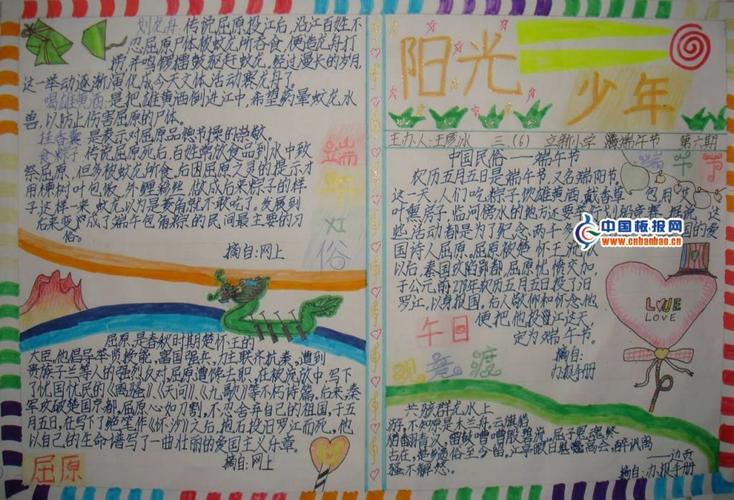 划龙舟 传说屈原投江后,沿江百姓不
忍屈原尸体被蛟龙所吞食,便造龙舟打
捞,并鸣锣擂鼓驱赶蛟龙,经过漫长的岁月,
这一举动逐渐演化成今天文体活动赛龙舟了。
喝雄黄酒:是把雄黄酒倒进江中,希望药晕蛟龙水
兽,以防止伤害屈原的尸体。
挂香囊 是表示对屈原品德节操的崇敬。
食粽子 传说屈原死后,百姓常饮食品到水中致
祭屈原,但多被蛟龙所食,后因屈原之灵的提示才
用楝树叶包饭,外缠彩丝,做成后来粽子的样
子这样一来,蛟龙以为是菱角就不敢吃了,发展到
后来变成了端午包角粽的民间最主要的习
俗。
摘自:网上
端
午
习
俗
屈原,是春秋时期楚怀王的
大臣,他倡导举贤授能,富国强兵,力主联齐抗秦,遭到
贵族子兰等人的强烈反对,屈原遭馋去职,在被流放中,写下
了忧国忧民的《离骚》、《天问》、《九歌》等不朽诗篇,后来,秦
军攻破楚国京都,屈原心如刀割,不忍舍弃自己的祖国,于五
月五日,在写下了绝笔作《怀沙》之后,抱石投汨罗江而死,他
以自己的生命谱写了一曲壮丽的爱国主义乐章。
摘自:网上
屈原
阳光
少年
主办人:王彦冰 三.(6) 立新小学 端午节 第六期
中国民俗——端午节
农历五月五日是端午节,又名端阳节
这一天,人们吃粽子饮雄黄酒,戴香草
叶熏房子,临河傍水的地方还要
些活动都是为了纪念两千
国诗人屈原。屈原就楚怀王
以后,秦国攻陷郢都,屈原忧愤交加,
于公元前278年农历五月五日投了汨
罗江,以身报国。后人敬仰和怀念他,
便把他投江这天,
定为端午节。
摘自:
办报手册
端 午 节
中国板报网
www.cnbanbao.cn
LOVE
LOVE
午日
观 竞 渡
共骇群龙水上
游,不知原是木兰舟,云旗
古在,楚乡遗俗至今留,江亭暇日堪高会,醉讽离
骚不解愁。
——边贡
摘自:办报手册